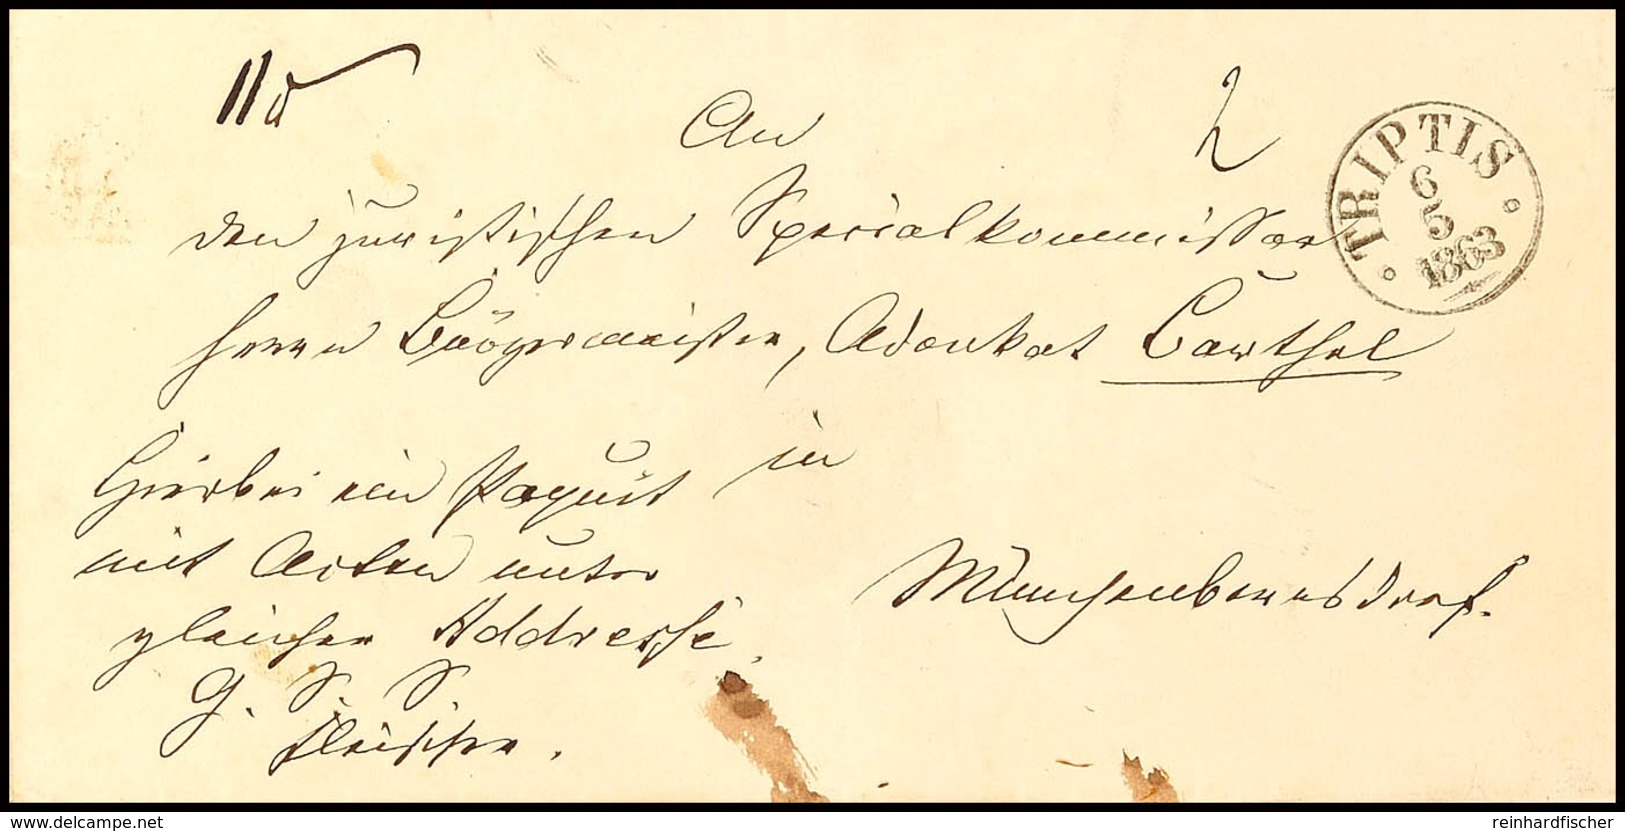 11d
2
An
TRIPTIS
6
5
1863
den juristischen Specialkommissar
Herrn Bürgermeister, Advokat Barthel
in
Münchenbernsdorf.
Hierbei ein Paquet
mit Acten unter
gleicher Addresse.
G. S. S.
Fleischer.
www.delcampe.net
reinhardfischer